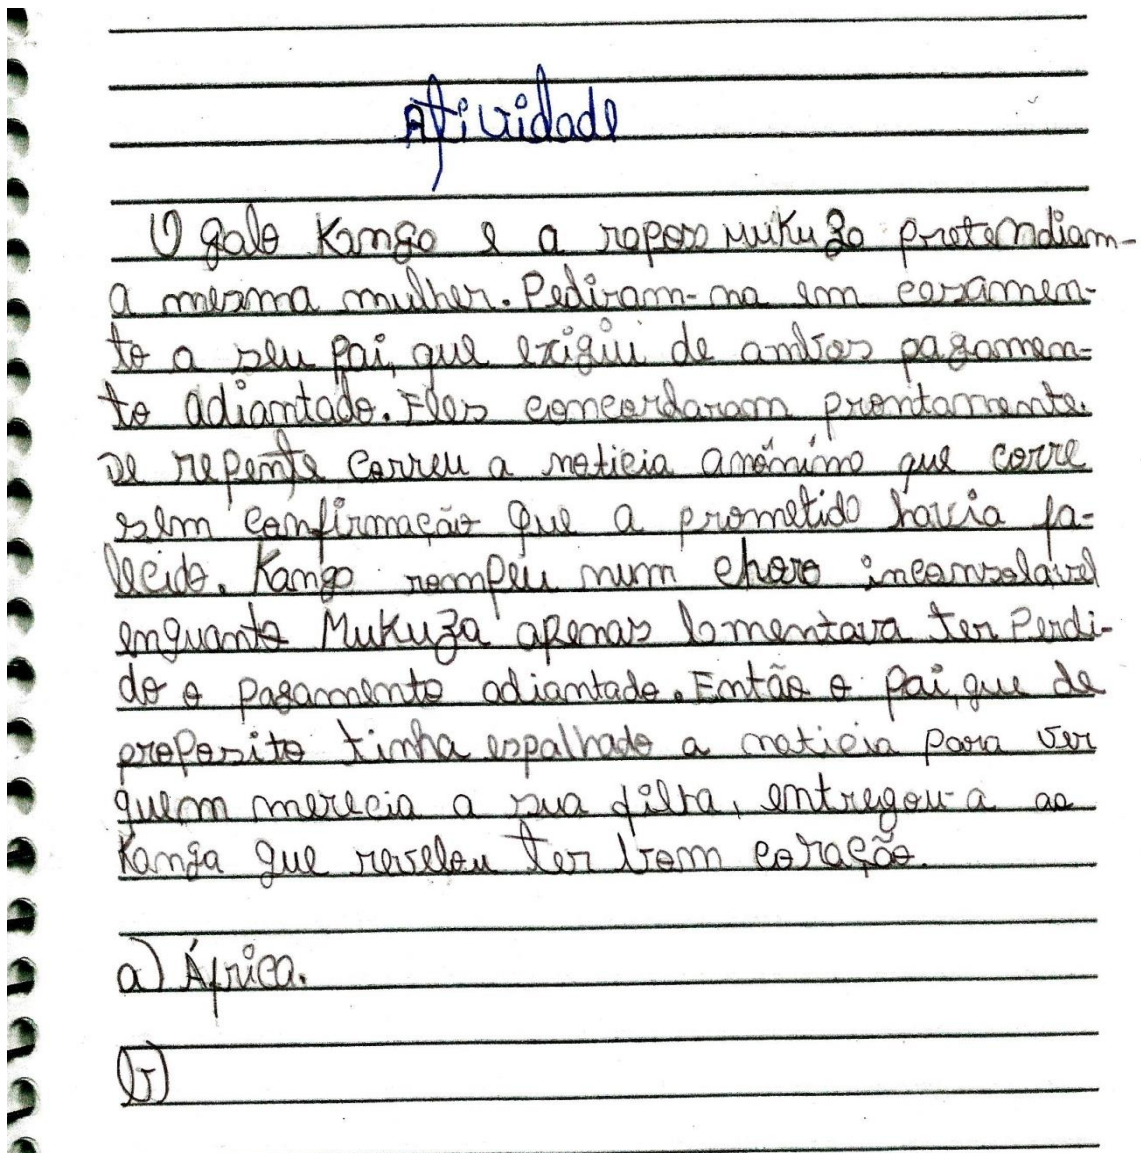 Atividade
O galo Kango e a raposa Mukuza pretendiam-
a mesma mulher. Pediram-na em casamen-
to a seu pai, que exigiu de ambos pagamen-
to adiantado. Eles concordaram prontamente.
De repente correu a noticia anônimo que corre
sem confirmação que a prometido havia fa-
lecido. Kango rompeu num choro inconsolável
enquanto Mukuza apenas lamentava ter perdi-
do o pagamento adiantado. Então o pai, que de
proposito tinha espalhado a noticia para ver
quem merecia a sua filha, entregou-a ao
Kanga que revelou ter bom coração.
a) África.
b)